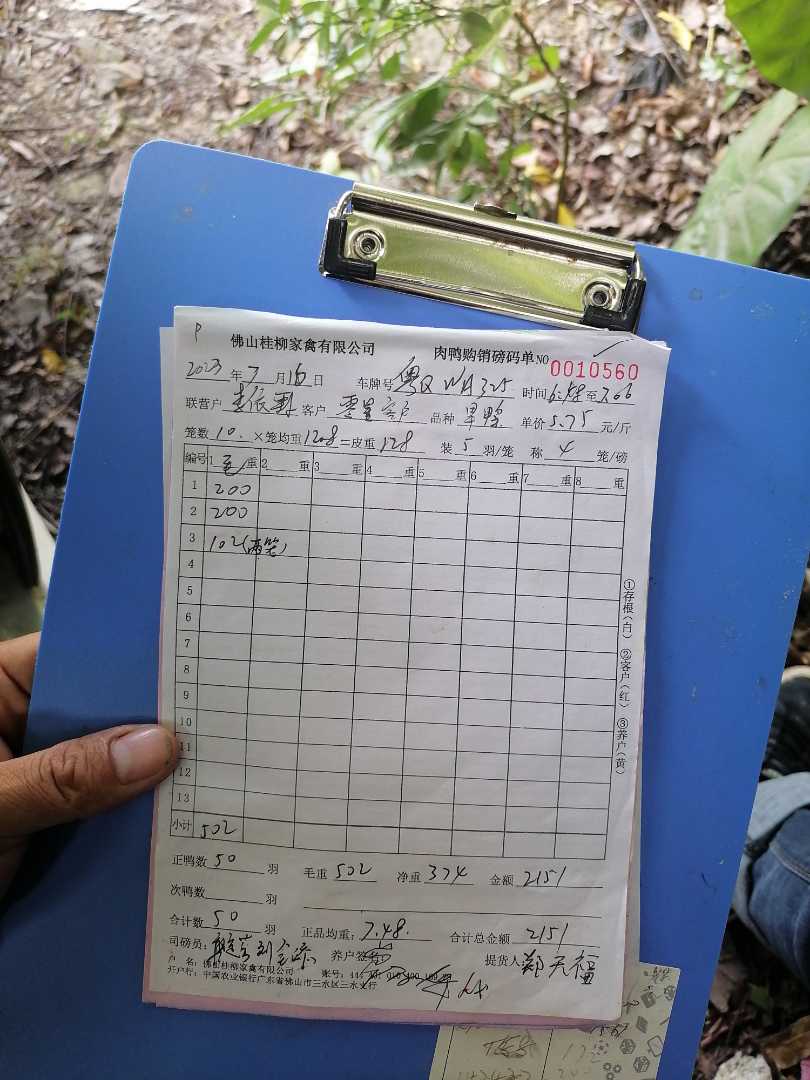 P
佛山桂柳家禽有限公司 肉鸭购销磅码单 NO 0010560
2023年7月16日 车牌号 粤 时间 至7.06
联营户 客户 零星客户 品种 单价5.75元/斤
笼数10.×笼均重12.8=皮重128 装5羽/笼 称4笼/磅
编号 1毛重 2 重 3 重 4 重 5 重 6 重 7 重 8 重
1 200
2 200
3 102(两笼)
4
5
6
7
8
9
10
11
12
13
小计 502
①存根(白) ②客户(红) ③养户(黄)
正鸭数50羽 毛重502 净重374 金额2151
次鸭数 羽
合计数50羽 正品均重:7.48. 合计总金额2151
司磅员: 养户签名 提货人 郑天福
户 名:佛山桂柳家禽有限公司 账号:
开户行:中国农业银行广东省佛山市三水区三水支行